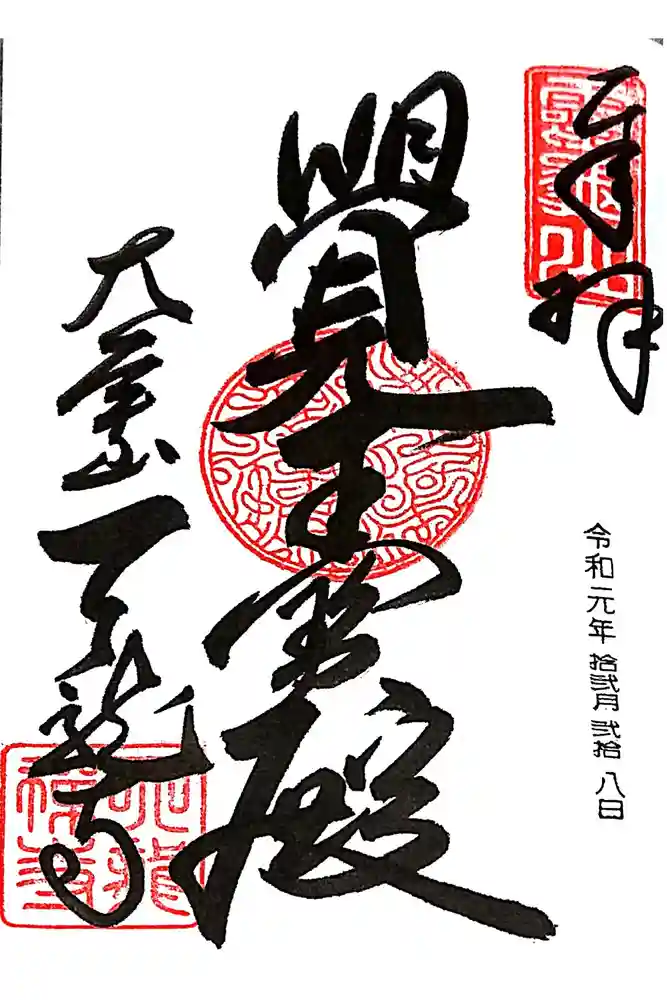 奉拝
靈龜山
令和元年 拾弐月 弐拾八日
覺王寶殿
大本山天龍寺